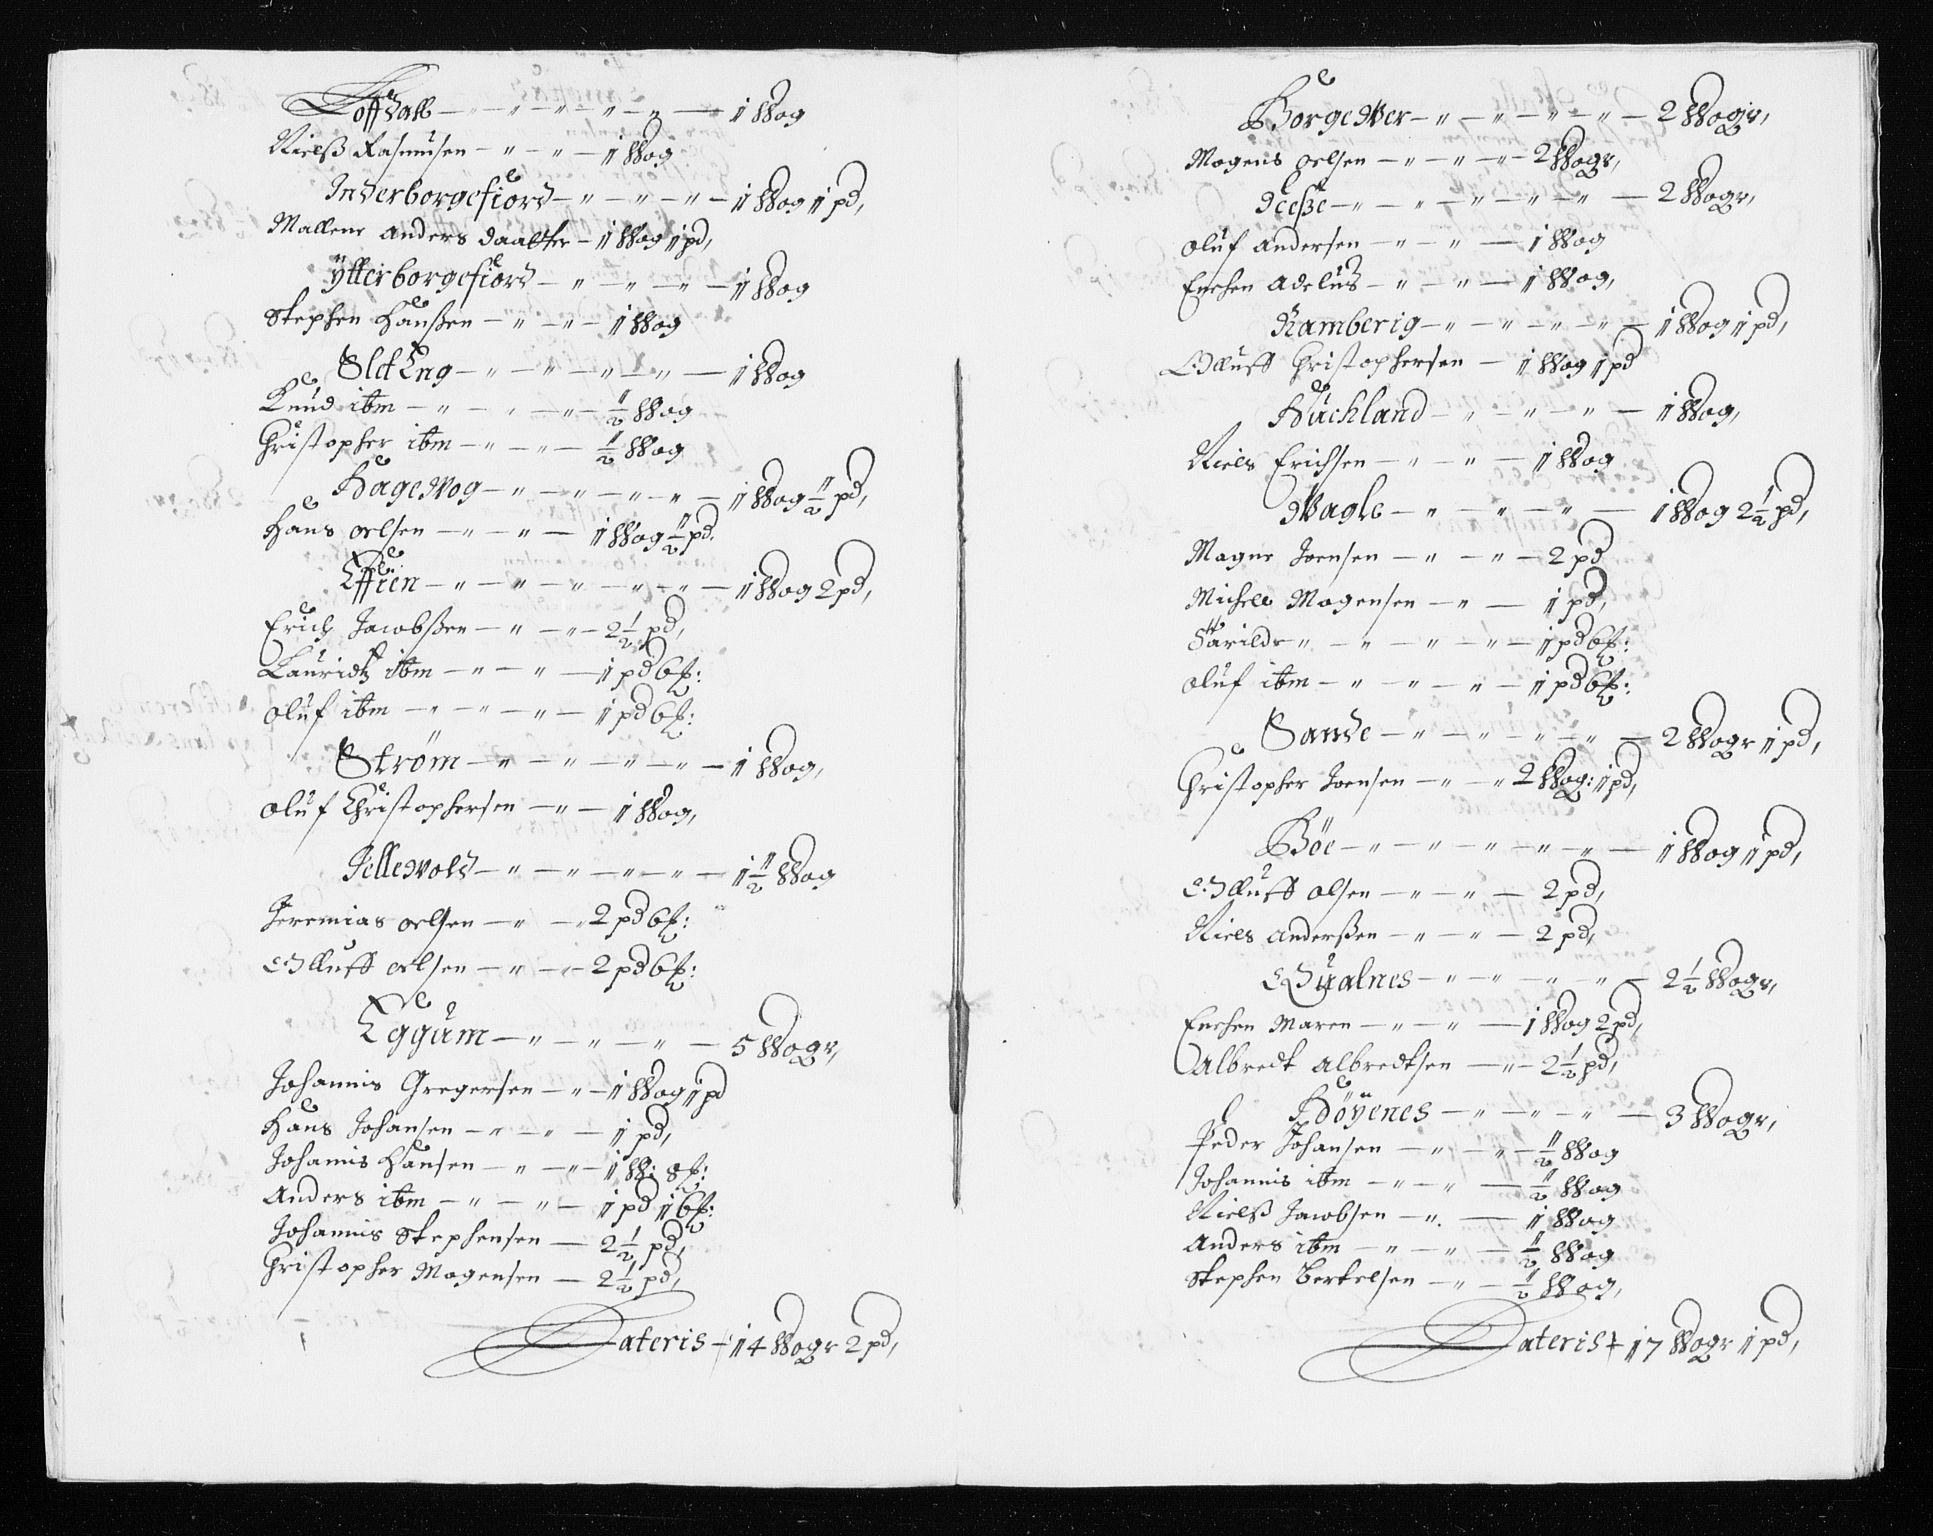 Loffhall — 1 Wog
Nielß Rasmusen — 1 Wog
Inderborgefiord — 1 Wog 1 pd,
Mallene Anders daatter — 1 Wog 1 pd,
Ÿtterborgefiord — 1 Wog
Stephen Hanßen — 1 Wog
Slet Eng — 1 Wog
Knud ibm — ½ Wog
Christopher ibm — ½ Wog
Hagewog — 1 Wog ½ pd,
Hans oelsen — 1 Wog ½ pd.
Effien — 1 Wog 2 pd,
Erich Jacobßen — 2½ pd,
Lauridtz ibm — 1 pd 6 ℔:
oluf ibm — 1 pd 6 ℔:
Strøm — 1 Wog,
oluf Christophersen — 1 Wog,
Jellewold — 1½ Wog
Jeremias oelsen — 2 pd 6 ℔:
Olluff oelsen — 2 pd 6 ℔:
Eggum — 5 Wogr,
Johannis Gregersen — 1 Wog 1 pd
Hans Johansen — 1 pd,
Johannis Hansen — 1 W: 8 ℔:
Anders ibm — 1 pd 16 ℔:
Johannis Stephensen — 2½ pd,
Christopher Mogensen — 2½ pd,
Lateris — 14 Wogr 2 pd,
Borgewer — 2 Wogr,
Mogens oelsen — 2 Wogr,
Deeße — 2 Wogr,
oluf Andersen — 1 Wog
Enchen Adelus — 1 Wog,
Ramberig — 1 Wog 1 pd,
Olluff Christophersen — 1 Wog 1 pd
Huchland — 1 Wog,
Niels Erichsen — 1 Wog
Wagle — 1 Wog 2½ pd,
Magne Joensen — 2 pd
Michell Mogensen — 1 pd,
Tarilde — 1 pd 6 ℔:
oluf ibm — 1 pd 6 ℔:
Sande — 2 Wogr 1 pd,
Christopher Joensen — 2 Wog: 1 pd,
Böe — 1 Wog 1 pd,
Olluff olsen — 2 pd,
Niels Anderßen — 2 pd,
Qualnes — 2½ Wogr,
Enchen Maren — 1 Wog 2 pd,
Albredt Albredtsen — 2½ pd,
Höÿenes — 3 Wogr,
Peder Johansen — ½ Wog
Johannis ibm — ½ Wog
Nielß Jacobsen — 1 Wog
Anders ibm — ½ Wog
Stephen Bertelsen — ½ Wog,
Lateris — 17 Wogr 1 pd,